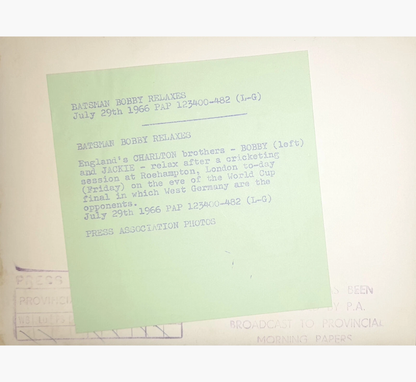 BATSMAN BOBBY RELAXES
July 29th 1966 PAP 123400-482 (L-G)
BATSMAN BOBBY RELAXES
England's CHARLTON brothers - BOBBY (left)
and JACKIE - relax after a cricketing
session at Roehampton, London to-day
(Friday) on the eve of the World Cup
final in which West Germany are the
opponents.
July 29th 1966 PAP 123400-482 (L-G)
PRESS ASSOCIATION PHOTOS
PRESS
PROVINCI
BEEN
P.A.
BROADCAST TO PROVINCIAL
MORNING PAPERS